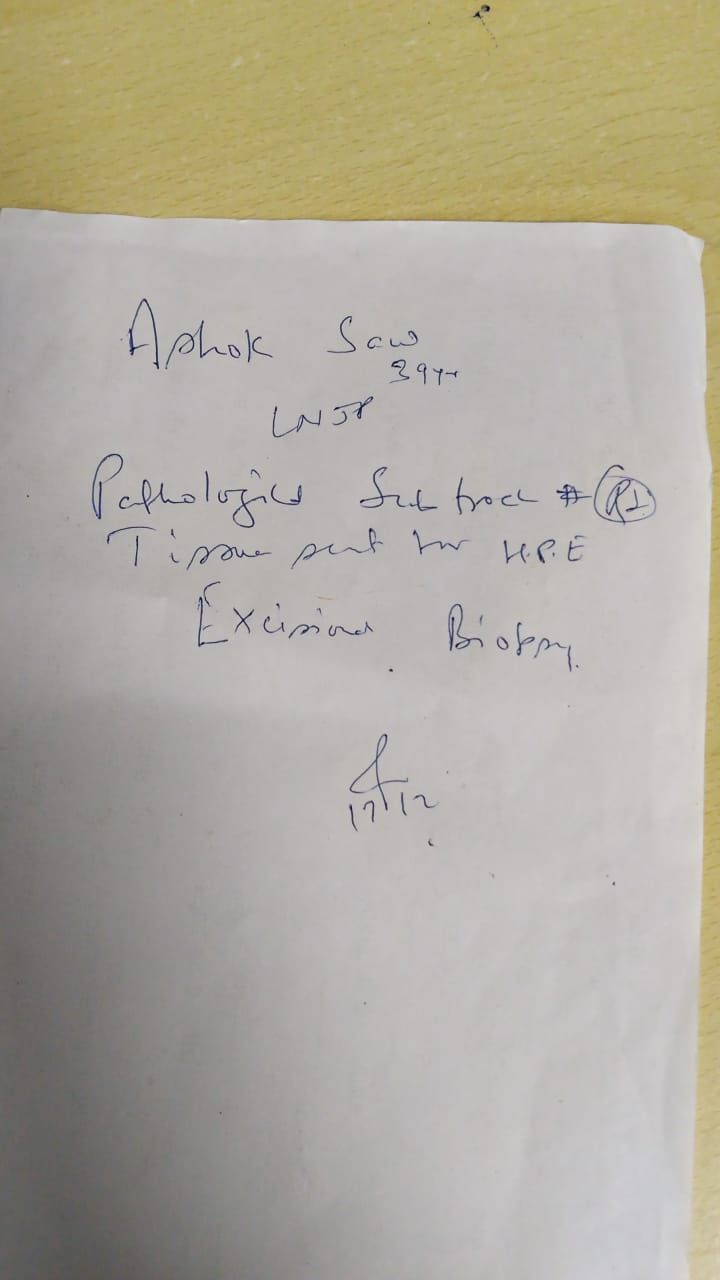 Ashok Saw
39yr
LNJP
Pathological Sub troch # Rt
Tissue sent for H.P.E
Excisional Biopsy.
17/12